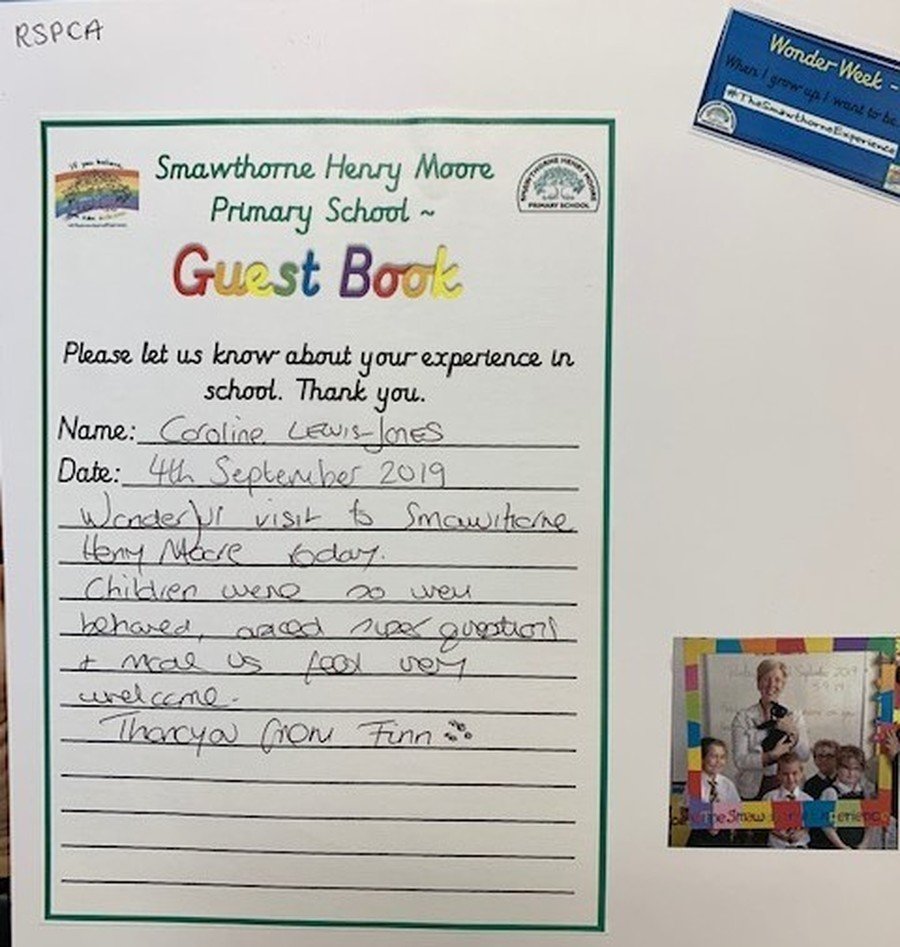 RSPCA
Wonder Week -
When I grow up I want to be
#TheSmawthorneExperience
If you believe
Smawthorne Henry Moore
Primary School ~
SMAWTHORNE HENRY MOORE
PRIMARY SCHOOL
Guest Book
Please let us know about your experience in
school. Thank you.
Name: Caroline LEWIS-JONES
Date: 4th September 2019
Wonderful visit to Smawthorne
Henry Moore today.
Children were so well
behaved, asked super questions
+ made us feel very
welcome.
Thankyou from Finn